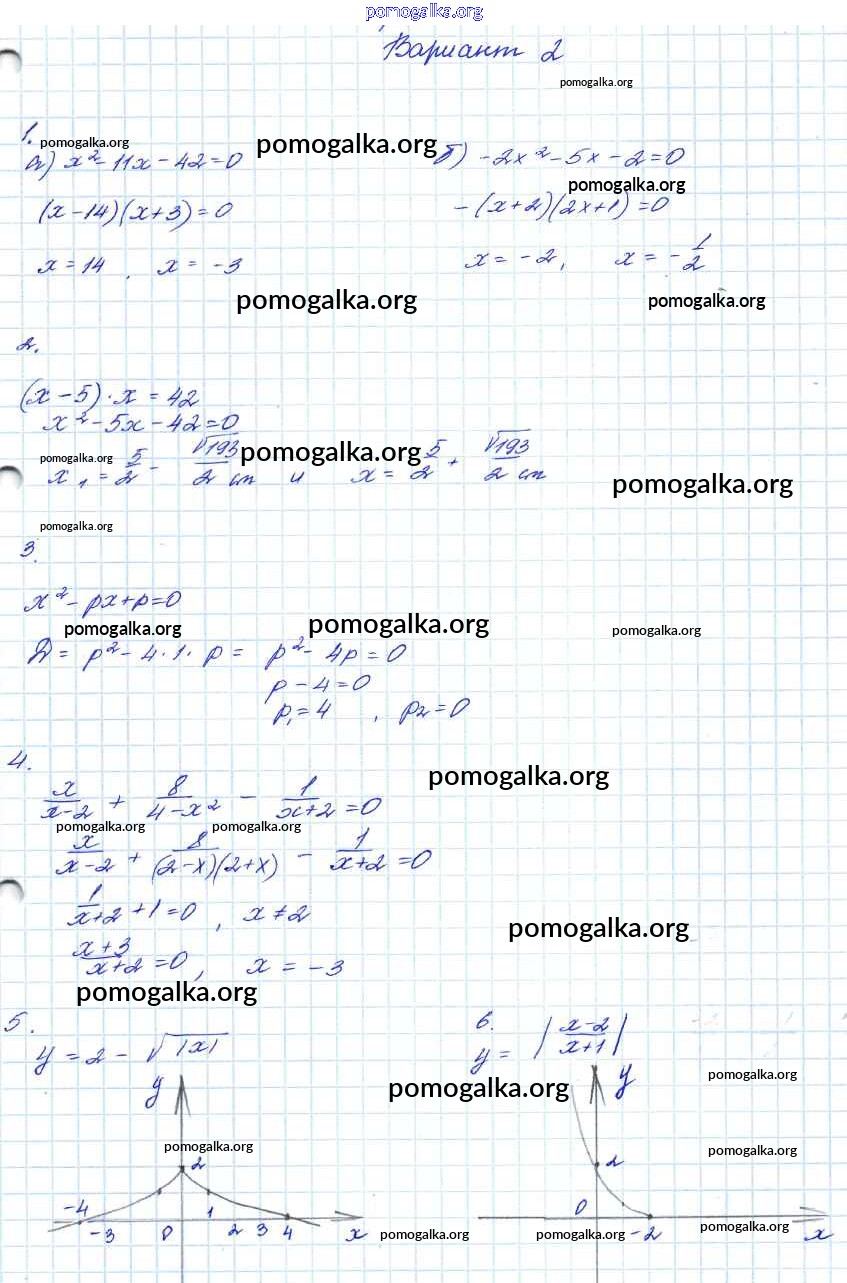 pomogalka.org
Вариант 2
pomogalka.org
1.
pomogalka.org
pomogalka.org
а) x² - 11x - 42 = 0
б) -2x² - 5x - 2 = 0
pomogalka.org
(x - 14)(x + 3) = 0
- (x + 2)(2x + 1) = 0
x = 14 , x = -3
x = -2, x = -1/2
pomogalka.org
pomogalka.org
2.
(x - 5) · x = 42
x² - 5x - 42 = 0
pomogalka.org
pomogalka.org
x₁ = 5/2 - √193/2 см и x = 5/2 + √193/2 см
pomogalka.org
pomogalka.org
3.
x² - px + p = 0
pomogalka.org
pomogalka.org
pomogalka.org
D = p² - 4 · 1 · p = p² - 4p = 0
p - 4 = 0
p₁ = 4 , p₂ = 0
4.
pomogalka.org
x/(x-2) + 8/(4-x²) - 1/(x+2) = 0
pomogalka.org
pomogalka.org
x/(x-2) + 8/((2-x)(2+x)) - 1/(x+2) = 0
1/(x+2) + 1 = 0 , x ≠ 2
pomogalka.org
(x+3)/(x+2) = 0 , x = -3
pomogalka.org
5.
y = 2 - √|x|
6.
y = |(x-2)/(x+1)|
pomogalka.org
pomogalka.org
y
y
pomogalka.org
pomogalka.org
2
2
-4
-3
0
1
2
3
4
x
0
-2
x
pomogalka.org
pomogalka.org
pomogalka.org